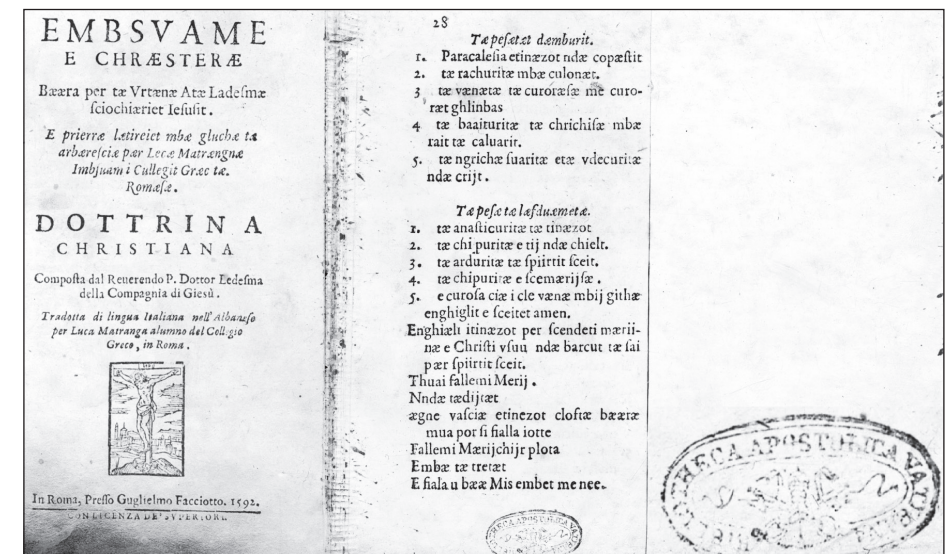 EMBSVAME
E CHRÆSTERÆ
Bææra per tæ Vrtænæ Atæ Ladeſmæ
ſciochiæriet Ieſuſit.
E prierræ lætireict mbæ gluchæ tæ
arbæreſciæ pær Lecæ Matrængnæ
Imbjuam i Cullegit Græc tæ.
Romæſæ.
DOTTRINA
CHRISTIANA
Compoſta dal Reuerendo P. Dottor Ledeſma
della Compagnia di Gieſù.
Tradotta di lingua Italiana nell'Albaneſo
per Luca Matranga alumno del Collegio
Greco, in Roma.
In Roma, Preſſo Guglielmo Facciotto. 1592.
CON LICENZA DE' SVPERIORI.
28
Tæ peſætæt dæmburit.
1. Paracaleſia etinæzot ndæ copæſtit
2. tæ rachuritæ mbæ culonæt.
3 tæ vænætæ tæ curoræſæ me curo-
ræt ghlinbas
4 tæ baaituritæ tæ chrichiſæ mbæ
rait tæ caluarit.
5. tæ ngrichæ ſuaritæ etæ vdecuritæ
ndæ crijt.
Tæ peſæ tæ læſduæmetæ.
1. tæ anaſticuritæ tæ tinæzot
2. tæ chi puritæ e tij ndæ chielt.
3. tæ arduritæ tæ ſpiirtit ſceit.
4. tæ chipuritæ e ſcemærijſæ.
5. e curoſa ciæ i cle vænæ mbij githæ
enghiglit e ſceitet amen.
Enghiæli itinæzot per ſcendeti mærii-
næ e Chriſti vſuu ndæ barcut tæ ſai
pær ſpiirtit ſceit.
Thuai fallemi Merij.
Nndæ tædijtæt
ægne vaſciæ etinezot cloftæ bæætæ
mua por ſi fialla iotte
Fallemi Mærijchijr plota
Embæ tæ tretæt
E fiala u bææ Mis embet me nee.
BIBLIOTHECA APOSTOLICA VATICANA